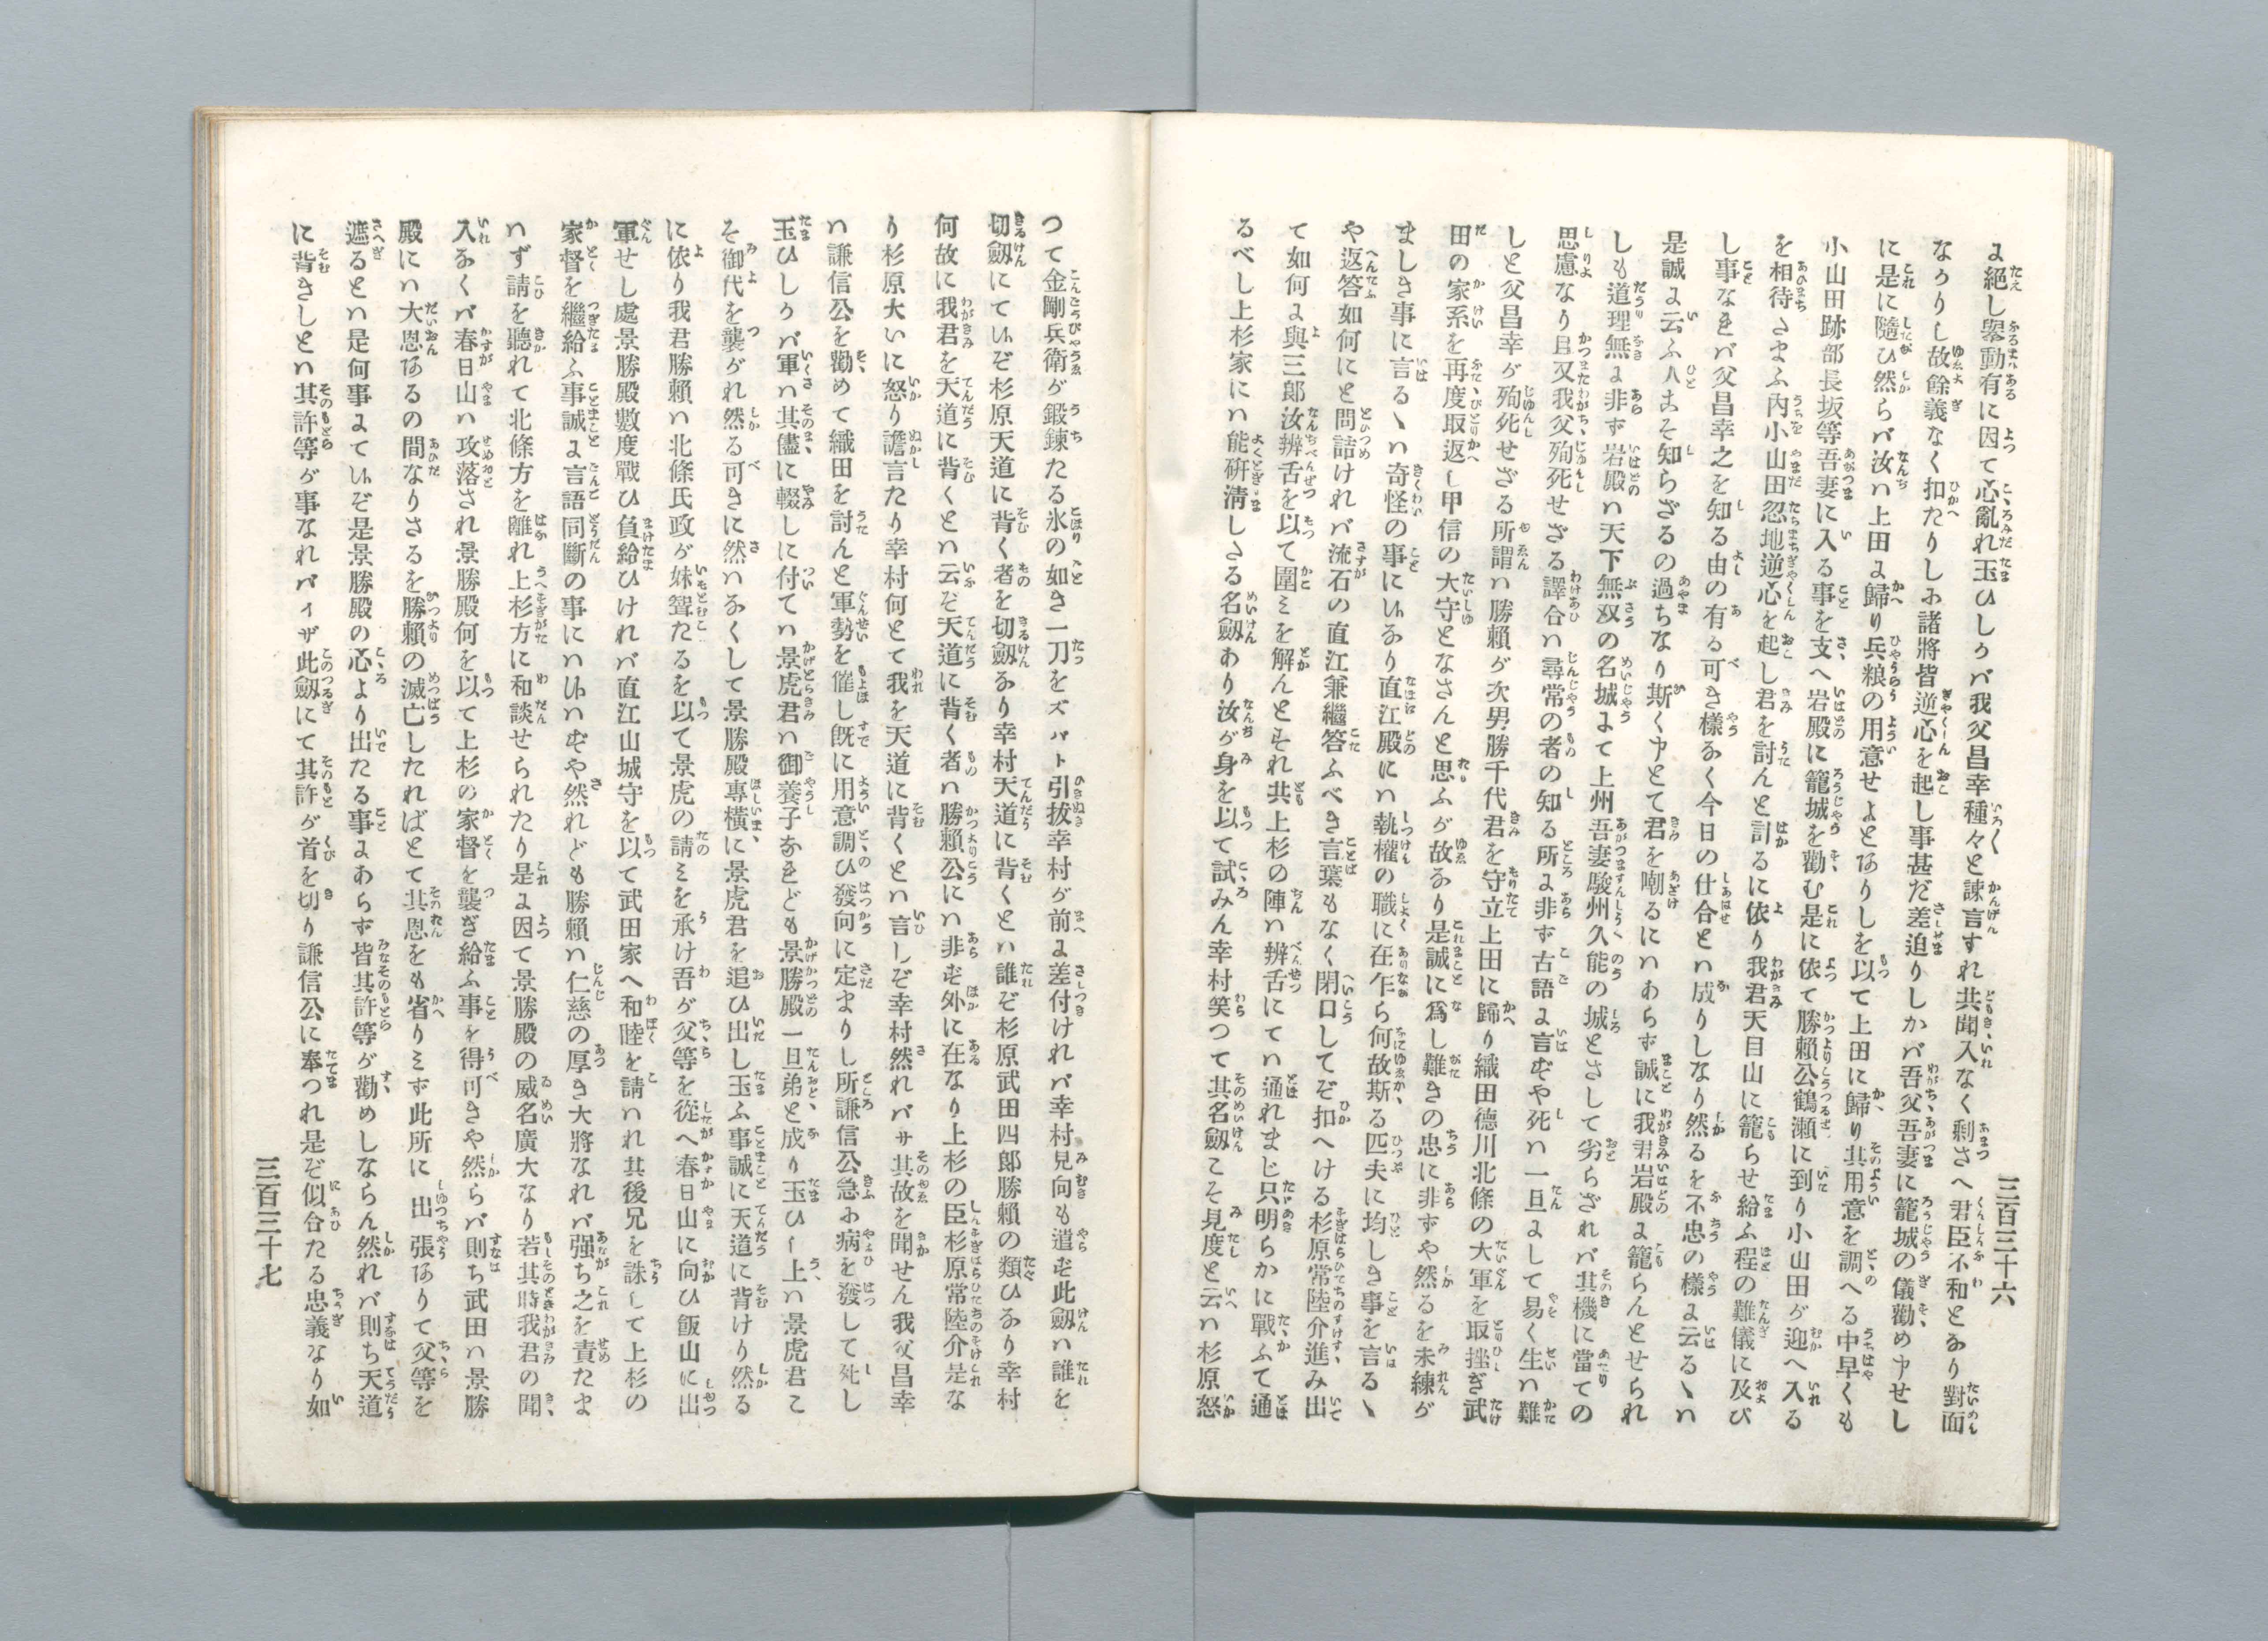 三百三十六
に絶し擧動有に因て心亂れ玉ひしかバ我父昌幸種々と諫言すれ共聞入なく剰さへ君臣不和となり對面
なかりし故餘義なく扣たりしに諸將皆逆心を起し事甚だ差迫りしかバ吾父吾妻に籠城の儀勸め申せし
に是に隨ひ然らバ汝ハ上田に歸り兵粮の用意せよとありしを以て上田に歸り其用意を調へる中早くも
小山田跡部長坂等吾妻に入る事を支へ岩殿に籠城を勸む是に依て勝賴公鶴瀬に到り小山田が迎へ入る
を相待さまふ内小山田忍地逆心を起し君を討んと計るに依り我君天目山に籠らせ給ふ程の難儀に及び
し事なれバ父昌幸之を知る由の有る可き樣なく今日の仕合とハ成りしなり然るを不忠の樣に云るゝハ
是誠に云ふ人こそ知らざるの過ちなり斯く申とて君を嘲るにハあらず誠に我君岩殿に籠らんとせられ
しも道理無に非ず岩殿ハ天下無双の名城にて上州吾妻駿州久能の城とさして劣らざれバ其機に當ての
思慮なり且又我父殉死せざる譯合ハ尋常の者の知る所に非ず古語に言ずや死ハ一旦にして易く生ハ難
しと父昌幸が殉死せざる所謂ハ勝賴が次男勝千代君を守立上田に歸り織田德川北條の大軍を取挫ぎ武
田の家系を再度取返し甲信の大守となさんと思ふが故なり是誠に爲し難きの忠に非ずや然るを未練が
ましき事に言るゝハ奇怪の事にいなり直江殿にハ執權の職に在乍ら何故斯る匹夫に均しき事を言るゝ
や返答如何にと問詰けれバ流石の直江兼繼答ふべき言葉もなく閉口してぞ扣へける杉原常陸介進み出
て如何に與三郎汝辨舌を以て圍ミを解んとそれ共上杉の陣ハ辨舌にてハ通れまじ只明らかに戰ふて通
るべし上杉家にハ能研淸しさる名劔あり汝が身を以て試みん幸村笑つて其名劔こそ見度と云ヘハ杉原怒
つて金剛兵衛が鍛錬たる氷の如き一刀をズバト引拔幸村が前に差付けれバ幸村見向も遣ず此劔ハ誰を
切劔にてハぞ杉原天道に背く者を切劔なり幸村天道に背くとハ誰ぞ杉原武田四郎勝賴の類ひなり幸村
何故に我君を天道に背くとハ云ぞ天道に背く者ハ勝賴公にハ非ず外に在なり上杉の臣杉原常陸介是な
り杉原大いに怒り譫言たり幸村何とて我を天道に背くとハ言しぞ幸村然れバサ其故を聞せん我父昌幸
ハ謙信公を勸めて織田を討んと軍勢を催し既に用意調ひ發向に定まりし所謙信公急に病を發して死し
玉ひしかバ軍ハ其儘に輟しに付てハ景虎君ハ御養子なれども景勝殿一旦弟と成り玉ひし上ハ景虎君こ
そ御代を襲がれ然る可きに然ハなくして景勝殿專横に景虎君を追ひ出し玉ふ事誠に天道に背けり然る
に依り我君勝賴ハ北條氏政が妹聟たるを以て景虎の請ミを承け吾が父等を從へ春日山に向ひ飯山に出
軍せし處景勝殿數度戰ひ負給ひけれバ直江山城守を以て武田家へ和睦を請ハれ其後兄を誅して上杉の
家督を繼給ふ事誠に言語同斷の事にハいハずや然れども勝賴ハ仁慈の厚き大將なれバ强ち之を責たま
ハず請を聽れて北條方を離れ上杉方に和談せられたり是に因て景勝殿の威名廣大なり若其時我君の聞
入なくバ春日山ハ攻落され景勝殿何を以て上杉の家督を襲ぎ給ふ事を得可きや然らバ則ち武田ハ景勝
殿にハ大恩あるの間なりさるを勝賴の滅亡したればとて其恩をも省りミず此所に出張ありて父等を
遮るとハ是何事にていぞ是景勝殿の心より出たる事にあらず皆其許等が勸めしならん然れバ則ち天道
に背きしとハ其許等が事なれバイザ此劔にて其許が首を切り謙信公に奉つれ是ぞ似合たる忠義なり如
三百三十七